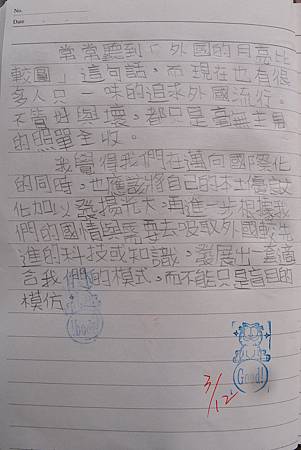 No.
Date
常常聽到「外國的月亮比
較圓」這句話，而現在也有很
多人只一味的追求外國流行。
不管好與壞，都只是毫無主見
的照單全收。
我覺得我們在邁向國際化
的同時，也應該將自己的本土傳統文
化加以發揚光大，再進一步根據我
們的國情與需要去吸取外國較先
進的科技或知識，發展出一套適
合我們的模式，而不能只是盲目的
模仿。
Good!
Good!
3/12